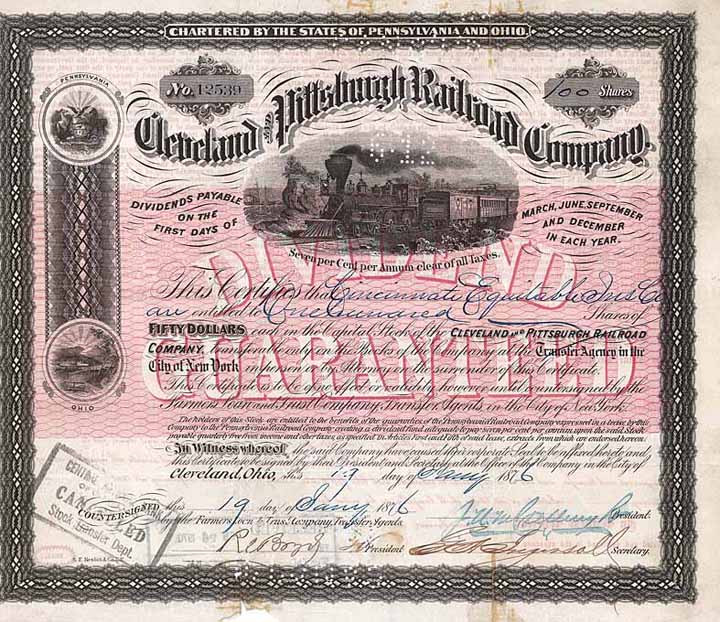 CHARTERED BY THE STATES OF PENNSYLVANIA AND OHIO.
PENNSYLVANIA
No. 12539
100 Shares
Cleveland and Pittsburgh Railroad Company.
DIVIDENDS PAYABLE ON THE FIRST DAYS OF
MARCH, JUNE, SEPTEMBER AND DECEMBER IN EACH YEAR.
Seven per Cent per Annum clear of all Taxes.
DIVIDEND
GUARANTEED
This Certifies that Cincinnati Equitable Ins Co
are entitled to One Hundred Shares of
FIFTY DOLLARS each in the Capital Stock of the CLEVELAND AND PITTSBURGH RAILROAD
COMPANY. Transferable only on the Books of the Company at the Transfer Agency in the
City of New York in person or by Attorney on the surrender of this Certificate.
This Certificate to be of no effect or validity however until countersigned by the
Farmers Loan and Trust Company, Transfer Agents in the City of New York.
The holders of this Stock are entitled to the benefits of the guarantee of the Pennsylvania Railroad Company expressed in a lease by this
Company to the Pennsylvania Railroad Company creating a dividend fund equal to seven per cent per annum upon the said Stock
payable quarterly free from income and other taxes, as specified in Articles First and Fifth of said lease, extracts from which are endorsed hereon.
In Witness whereof, the said Company have caused their corporate Seal to be affixed hereto and
this Certificate to be signed by their President and Secretary at the Office of the Company in the City of
Cleveland, Ohio, this 19 day of Jany 1876
OHIO
COUNTERSIGNED
This 19 day of Jany 1876
by the Farmers Loan & Trust Company, Transfer Agents.
President.
President
Secretary.
Stock Transfer Dept.